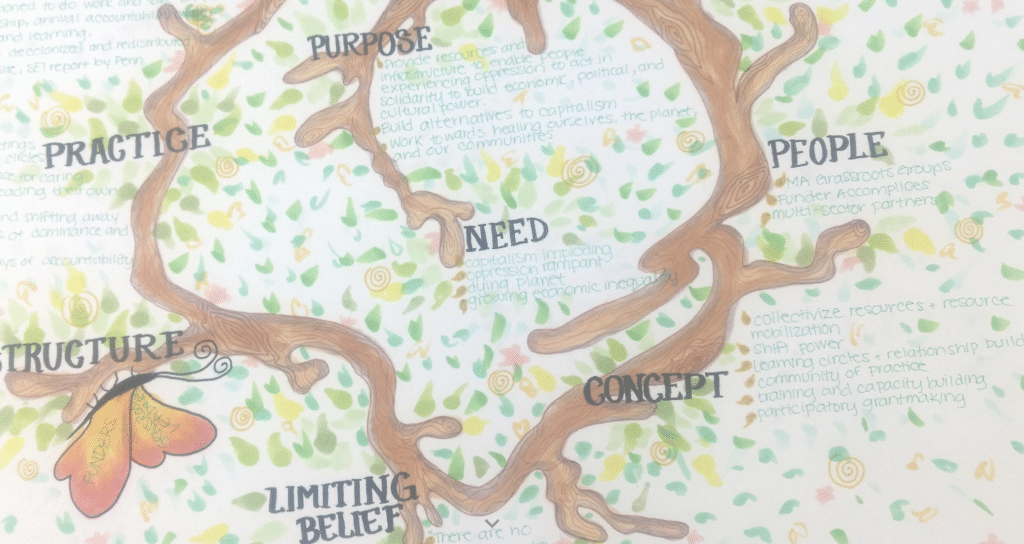 ship, annual accountability
and learning.
decolonized and redistributed
site, SE1 report by Penn
PRACTICE
circles
ce for caring
eading their own
nd shifting away
dominance and
ays of accountability
PURPOSE
Provide resources and
infrastructure to enable people
experiencing oppression to act in
solidarity to build economic, political, and
cultural power.
Build alternatives to capitalism
work towards healing ourselves, the planet,
and our communities
NEED
capitalism imploding
oppression rampant
dying planet
growing economic inequality
PEOPLE
MA Grassroots Groups
Funder Accomplices
multi-sector partners
STRUCTURE
FUNDERS
CONCEPT
collectivize resources + resource
mobilization
shift power
learning circles + relationship build
community of practice
training and capacity building
participatory grantmaking
LIMITING
BELIEF
"There are no